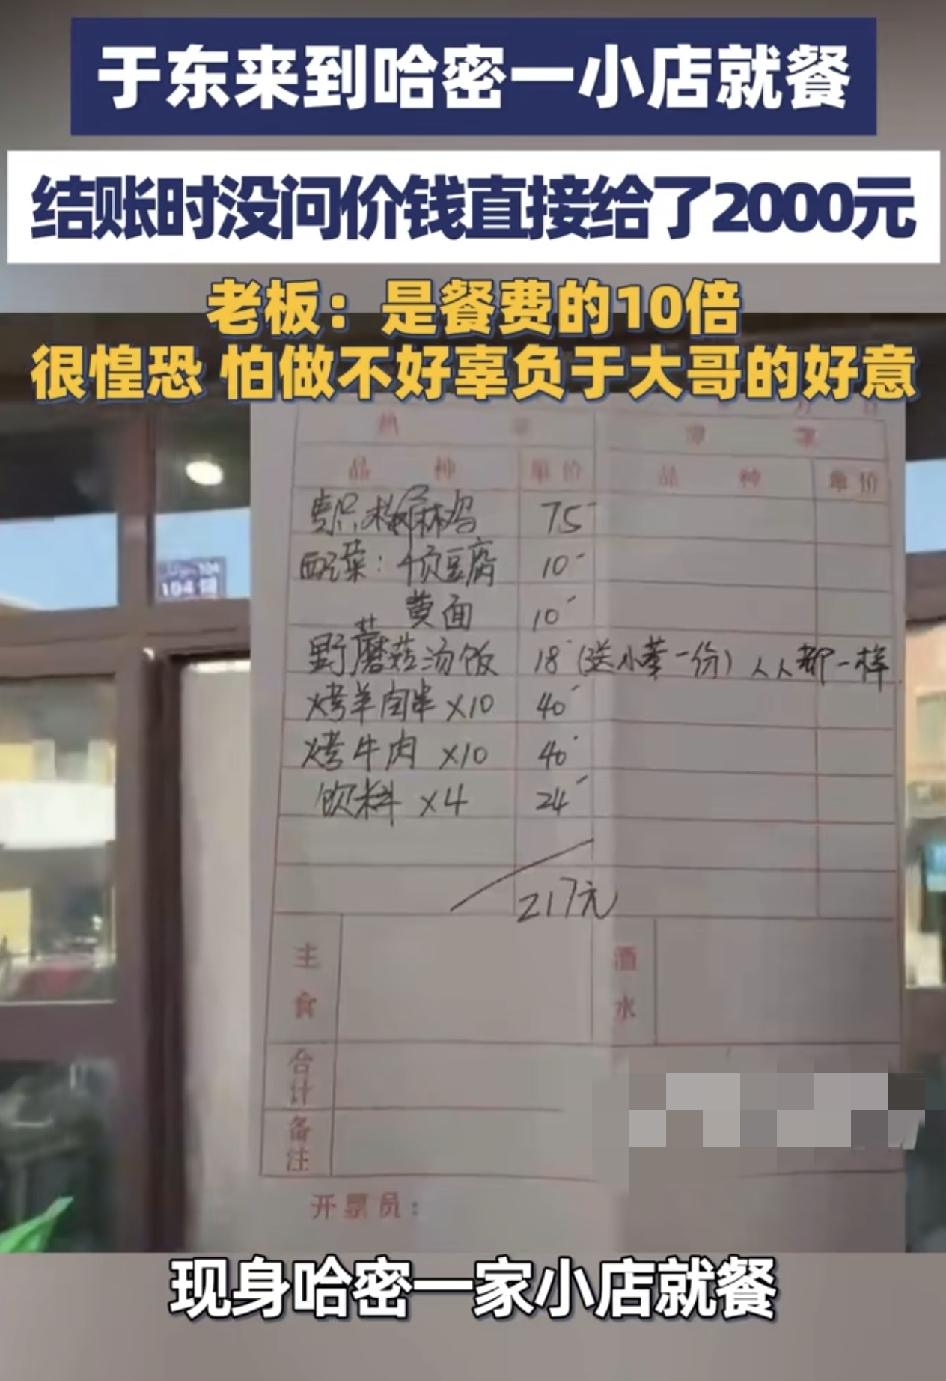 于东来到哈密一小店就餐
结账时没问价钱直接给了2000元
老板：是餐费的10倍
很惶恐 怕做不好辜负于大哥的好意
热 菜
品 种 单价 品 种 单价
椒麻鸡 75
配菜：千页豆腐 10
黄面 10
野蘑菇汤饭 18 (送小菜一份) 人人都一样
烤羊肉串 ×10 40
烤牛肉 ×10 40
饮料 ×4 24
217元
主食
酒水
合计
备注
开票员：
104
现身哈密一家小店就餐